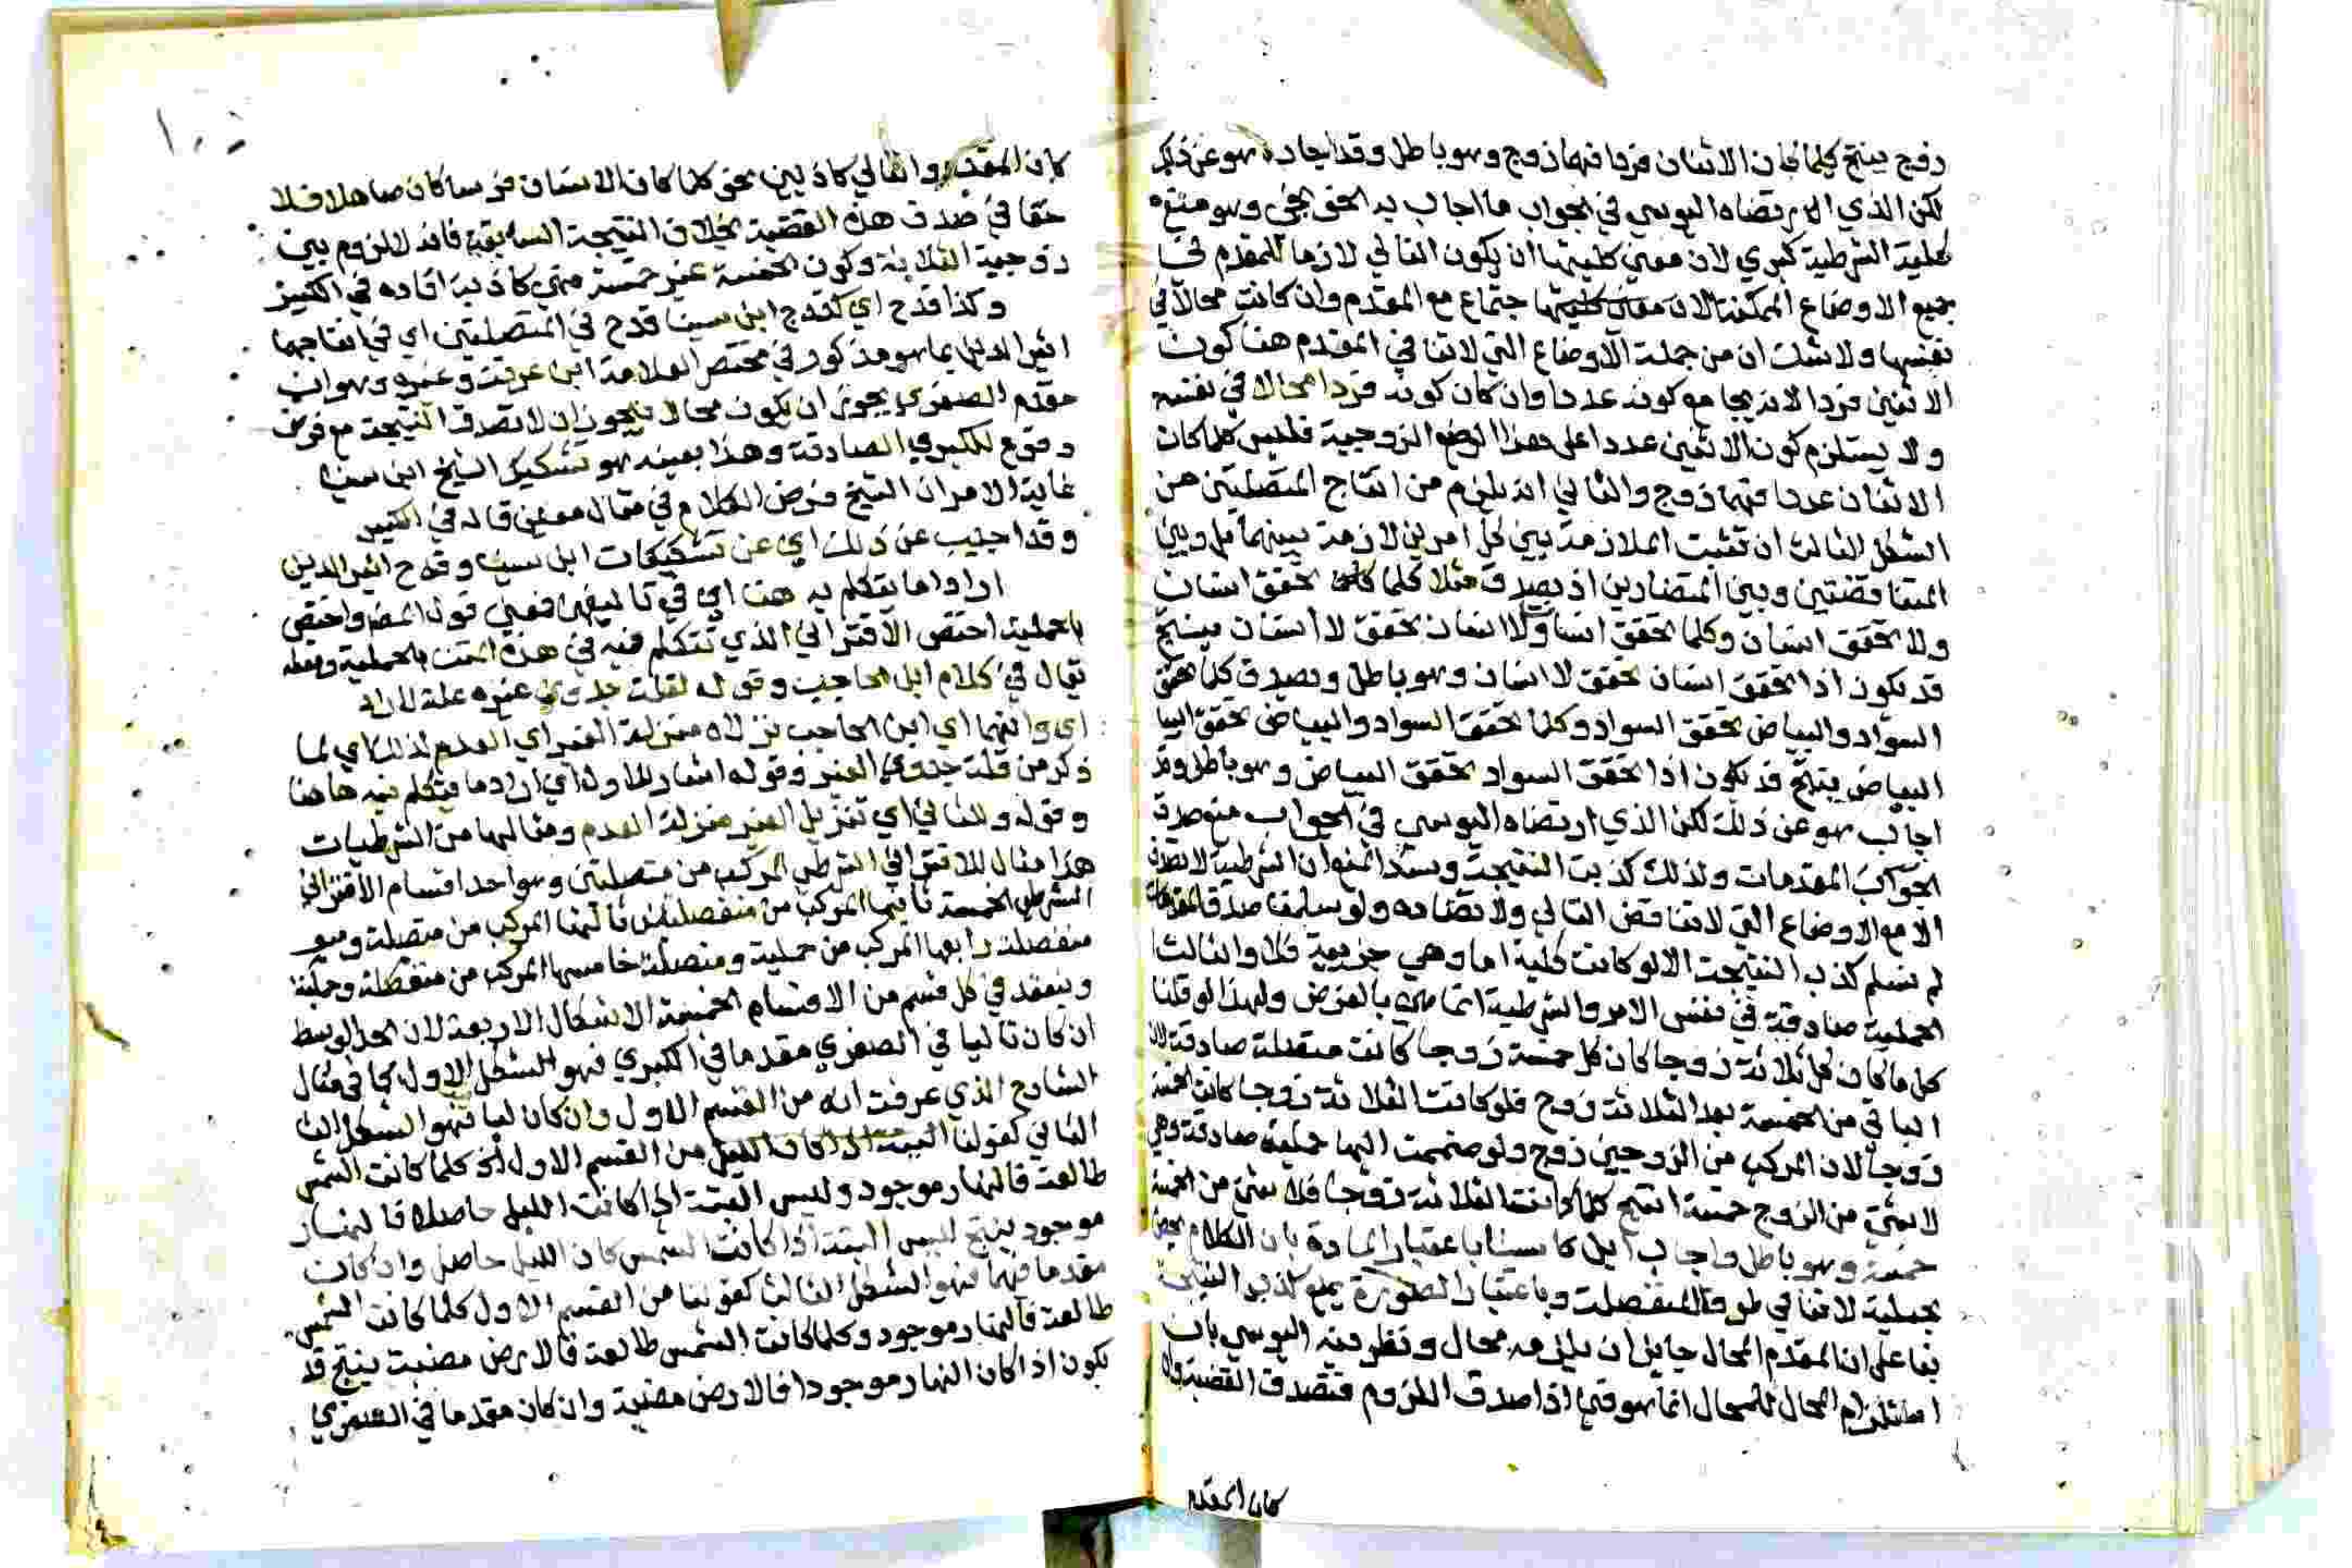 زوج ينتج كلما كان الاثنان فردا فهما زوج وهو باطل وقد اجاد هو عن ذلك
لكن الذي ارتضاه اليوسي في الجواب ما اجاب به الخونجي وهو منع
كلية الشرطية كبري لان معني كليتها ان يكون التالي لازما للمقدم في
جميع الاوضاع الممكنة الاجتماع مع المقدم وان كانت محالا في
نفسها ولا شك ان من جملة الاوضاع التي لا تنافي المقدم هنا كون
الاثنين فردا لانه يجامع كونه عددا وان كان كونه فردا محالا في نفسه
ولا يستلزم كون الاثنين عددا على هذا الوضع الزوجية فليس كلما كان
الاثنان عددا فهما زوج والثاني انه يلزم من انتاج المتصلتين من
الشكل الثالث ان تثبت الملازمة بين كل امرين لازمة بينهما بل وبين
المتناقضتين وبين المتضادين اذ يصدق مثلا كلما تحقق انسان
ولا تحقق انسان وكلما تحقق انسان ولا انسان تحقق لا انسان ينتج
قد يكون اذا تحقق انسان تحقق لا انسان وهو باطل ويصدق كلما تحقق
السواد والبياض تحقق السواد وكلما تحقق السواد والبياض تحقق البيا
البياض ينتج قد يكون اذا تحقق السواد تحقق البياض وهو باطل وقد
اجاب هو عن ذلك لكن الذي ارتضاه اليوسي في الجواب منع صدق
الجواب المقدمات ولذلك كذبت النتيجة وسند المنع ان الشرطية لا تصدق
الا مع الاوضاع التي لا تناقض التالي ولا تضاده ولو سلمنا صدق المقدمات
لم نسلم كذب النتيجة الا لو كانت كلية اما وهي جزئية فلا والثالث
الحملية صادقة في نفس الامر والشرطية انما هي بالفرض ولهذا لو قلنا
كل ما كان كل ثلاثة زوجا كان كل خمسة زوجا كانت متصلة صادقة لان
الباقي من الخمسة بعد الثلاثة زوج فلو كانت الثلاثة زوجا كانت الخمسة
زوجا لان المركب من الزوجين زوج ولو ضممت اليها حملية صادقة وهي
لا شي من الزوج خمسة انتج كلما كانت الثلاثة زوجا فلا شي من الخمسة
خمسة وهو باطل واجاب ابن سينا باعتبار المادة بان الكلام
بحملية لا تنافي طرف المتصلة وباعتبار الصورة بمنع كذب النتيجة
بنا على ان المقدم المحال جايز ان يلزمه محال ونظر فيه اليوسي بان
استلزام المحال للمحال انما هو فيما اذا صدق اللزوم فتصدق القضية ولو
كان المقدم
١٠٥
كان المقدم والتالي كاذبين نحو كلما كان الانسان فرسا كان صاهلا فلا
خفا في صدق هذه القضية بخلاف النتيجة السابقة فانه لا لزوم بين
زوجية الثلاثة وكون الخمسة غير خمسة فهي كاذبة افاده في الكبير
وكذا قدح اي كقدح ابن سينا قدح في المتصلتين اي في انتاجهما
اثير الدين بما هو مذكور في مختصر العلامة ابن عرفة وغيره وهو ان
مقدم الصغري يجوز ان يكون محالا فيجوز ان لا تصدق النتيجة مع فرض
وقوع الكبري الصادقة وهذا بعينه هو تشكيك الشيخ ابن سينا
غاية الامر ان الشيخ فرض الكلام في مثال معين قاله في الكبير
وقد اجيب عن ذلك اي عن تشكيكات ابن سينا وقدح اثير الدين
اراد اما يتكلم به هنا اي في تاليفي فمعني قول المصنف واختص
بالحملية اختص الاقتراني الذي نتكلم فيه في هذه المتن بالحملية ومثله
يقال في كلام ابن الحاجب وقوله لقلة جدوي غيره علة لاراد
اي وانهما اي ابن الحاجب نزلاه منزلة الغير اي العدم لذلك اي لما
ذكر من قلة جدوي الغير وقوله اشار للاول اي اراد ما يتكلم فيه هاهنا
وقوله وللثاني اي تنزيل الغير منزلة العدم ومثالهما من الشرطيات
هذا مثال للاقتراني الشرطي المركب من متصلتين وهو احد اقسام الاقتراني
الشرطي الخمسة ثانيها المركب من منفصلتين ثالثها المركب من متصلة و
منفصلة رابعها المركب من حملية ومتصلة خامسها المركب من منفصلة وحملية
وينعقد في كل قسم من الاقسام الخمسة الاشكال الاربعة لان الحد الوسط
ان كان تاليا في الصغري مقدما في الكبري فهو الشكل الاول كما في مثال
الشارح الذي عرفت انه من القسم الاول وان كان تاليا فيهما فهو الشكل الثا
الثاني كقولنا من القسم الاول كلما كانت الشمس
طالعة فالنهار موجود وليس البتة اذا كانت الليل حاصلا فالنهار
موجود ينتج ليس البتة اذا كانت الشمس كان الليل حاصل وان كان
مقدما فيهما فهو الشكل الثالث كقولنا من القسم الاول كلما كانت الشمس
طالعة فالنهار موجود وكلما كانت الشمس طالعة فالارض مضيئة ينتج قد
يكون اذا كان النهار موجودا فالارض مضيئة وان كان مقدما في الصغري